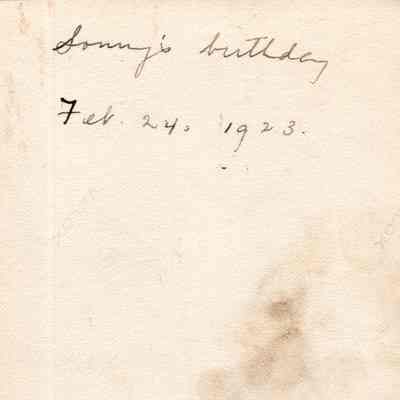 Sonny's birthday
Feb. 24, 1923.